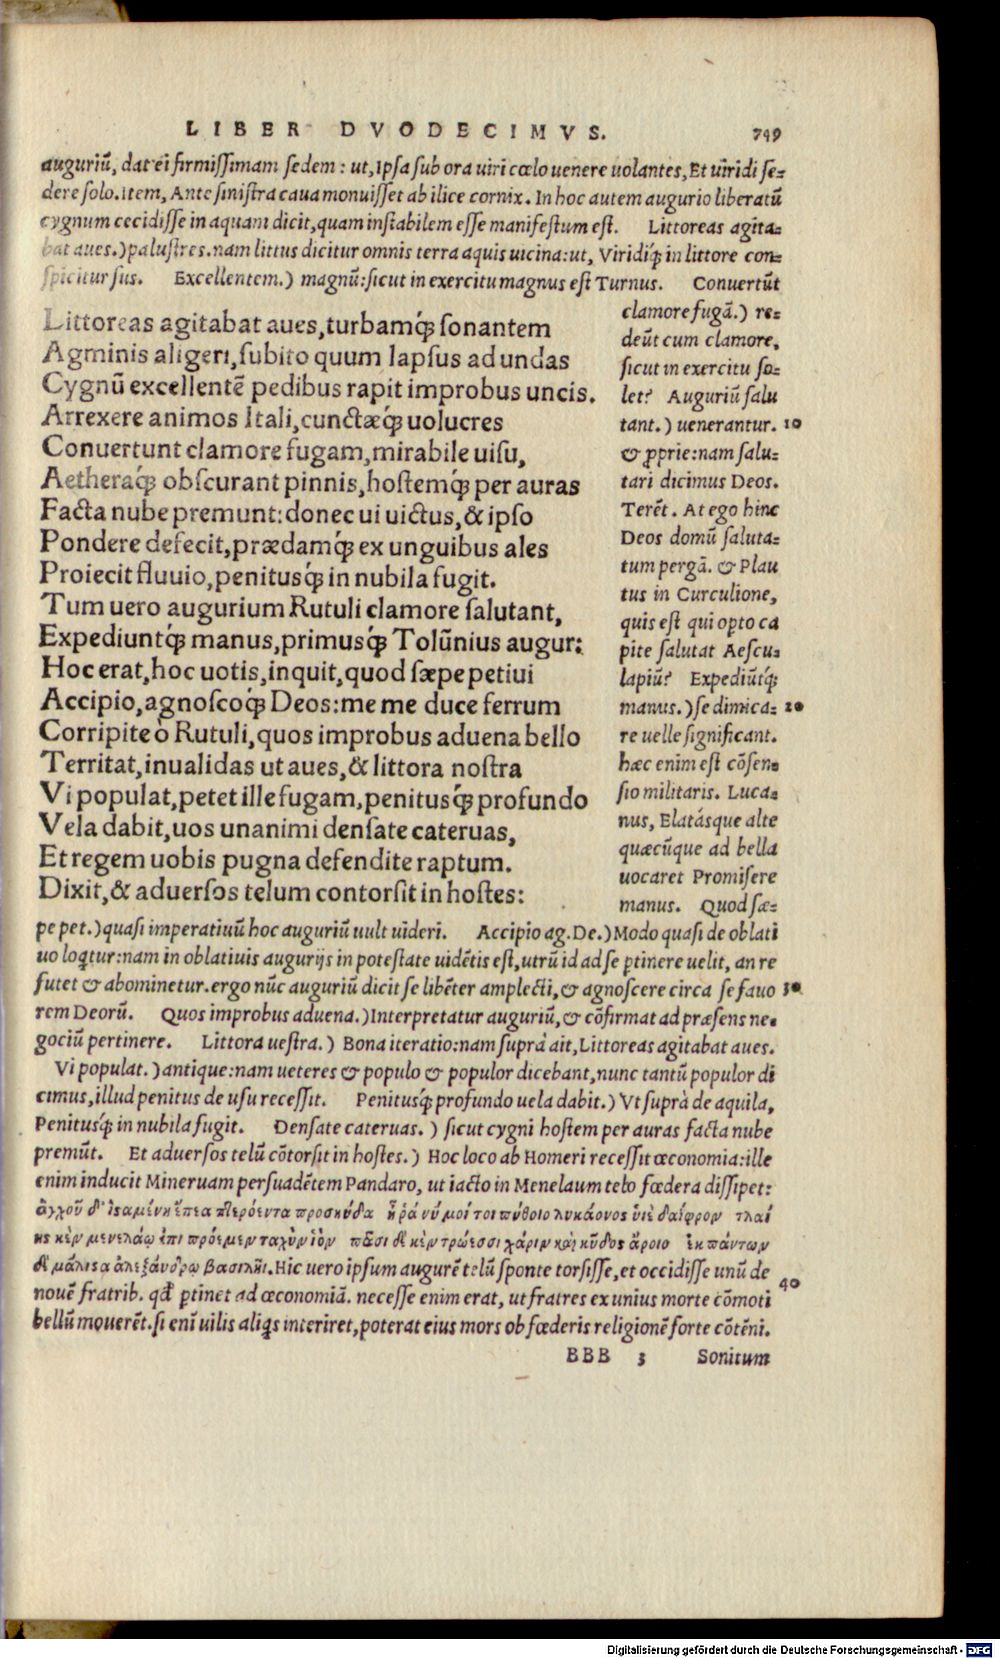 LIBER DVODECIMVS. 749
auguriũ, dat ei firmissimam sedem : ut, Ipsa sub ora uiri cœlo uenere uolantes, Et uiridi se=
dere solo. Item, Ante sinistra caua monuisset ab ilice cornix. In hoc autem augurio liberatũ
cygnum cecidisse in aquam dicit, quam instabilem esse manifestum est. Littoreas agita=
bat aues.) palustres. nam littus dicitur omnis terra aquis uicina: ut, Viridiq́; in littore con=
spicitur sus. Excellentem.) magnũ: sicut in exercitu magnus est Turnus. Conuertũt
Littoreas agitabat aues, turbamq́; sonantem
Agminis aligeri, subito quum lapsus ad undas
Cygnũ excellentẽ pedibus rapit improbus uncis.
Arrexere animos Itali, cunctæq́; uolucres
Conuertunt clamore fugam, mirabile uisu,
Aetheraq́; obscurant pinnis, hostemq́; per auras
Facta nube premunt: donec ui uictus, & ipso
Pondere defecit, prædamq́; ex unguibus ales
Proiecit fluuio, penitusq́; in nubila fugit.
Tum uero augurium Rutuli clamore salutant,
Expediuntq́; manus, primusq́; Tolũnius augur:
Hoc erat, hoc uotis, inquit, quod sæpe petiui
Accipio, agnoscoq́; Deos: me me duce ferrum
Corripite ò Rutuli, quos improbus aduena bello
Territat, inualidas ut aues, & littora nostra
Vi populat, petet ille fugam, penitusq́; profundo
Vela dabit, uos unanimi densate cateruas,
Et regem uobis pugna defendite raptum.
Dixit, & aduersos telum contorsit in hostes:
clamore fugã.) re=
deũt cum clamore,
sicut in exercitu so=
let? Auguriũ salu
tant.) uenerantur. 10
& ꝓprie: nam salu=
tari dicimus Deos.
Terẽt. At ego hinc
Deos domũ saluta=
tum pergã. & Plau
tus in Curculione,
quis est qui opto ca
pite salutat Aescu=
lapiũ? Expediũtq́;
manus.) se dimica= 20
re uelle significant.
hæc enim est cõsen=
sio militaris. Luca=
nus, Elatásque alte
quæcũque ad bella
uocaret Promisere
manus. Quod sæ=
pe pet.) quasi imperatiuũ hoc auguriũ uult uideri. Accipio ag. De.) Modo quasi de oblati
uo loq̃tur: nam in oblatiuis augurijs in potestate uidẽtis est, utrũ id ad se ꝑtinere uelit, an re
futet & abominetur. ergo nũc auguriũ dicit se libẽter amplecti, & agnoscere circa se fauo 30
rem Deorũ. Quos improbus aduena.) Interpretatur auguriũ, & cõfirmat ad præsens ne=
gociũ pertinere. Littora uestra.) Bona iteratio: nam suprà ait, Littoreas agitabat aues.
Vi populat.) antique: nam ueteres & populo & populor dicebant, nunc tantũ populor di
cimus, illud penitus de usu recessit. Penitusq́; profundo uela dabit.) Vt suprà de aquila,
Penitusq́; in nubila fugit. Densate cateruas.) sicut cygni hostem per auras facta nube
premũt. Et aduersos telũ cõtorsit in hostes.) Hoc loco ab Homeri recessit œconomia: ille
enim inducit Mineruam persuadẽtem Pandaro, ut iacto in Menelaum telo fœdera dissipet:
ἀγχοῦ δ' ἱσαμένη ἔπεα πτερόεντα προσηύδα ἦ ῥά νύ μοί τοι πύθοιο λυκάονος ὑιὲ δαΐφρον τλαί
ης κὲν μενελάῳ ἐπι προέμεν ταχὺν ἰὸν πᾶσι δὲ κὲν τρώεσσι χάριν καὶ κῦδος ἄροιο ἐκ πάντων
δὲ μάλιςα ἀλεξάνδρῳ βασιλῆϊ. Hic uero ipsum augurẽ telũ sponte torsisse, et occidisse unũ de
nouẽ fratrib. qđ ꝑtinet ad œconomiã. necesse enim erat, ut fratres ex unius morte cõmoti 40
bellũ mouerẽt. si eni uilis aliq̃s interiret, poterat eius mors ob fœderis religionẽ forte cõtẽni.
BBB 3 Sonitum
Digitalisierung gefördert durch die Deutsche Forschungsgemeinschaft - DFG